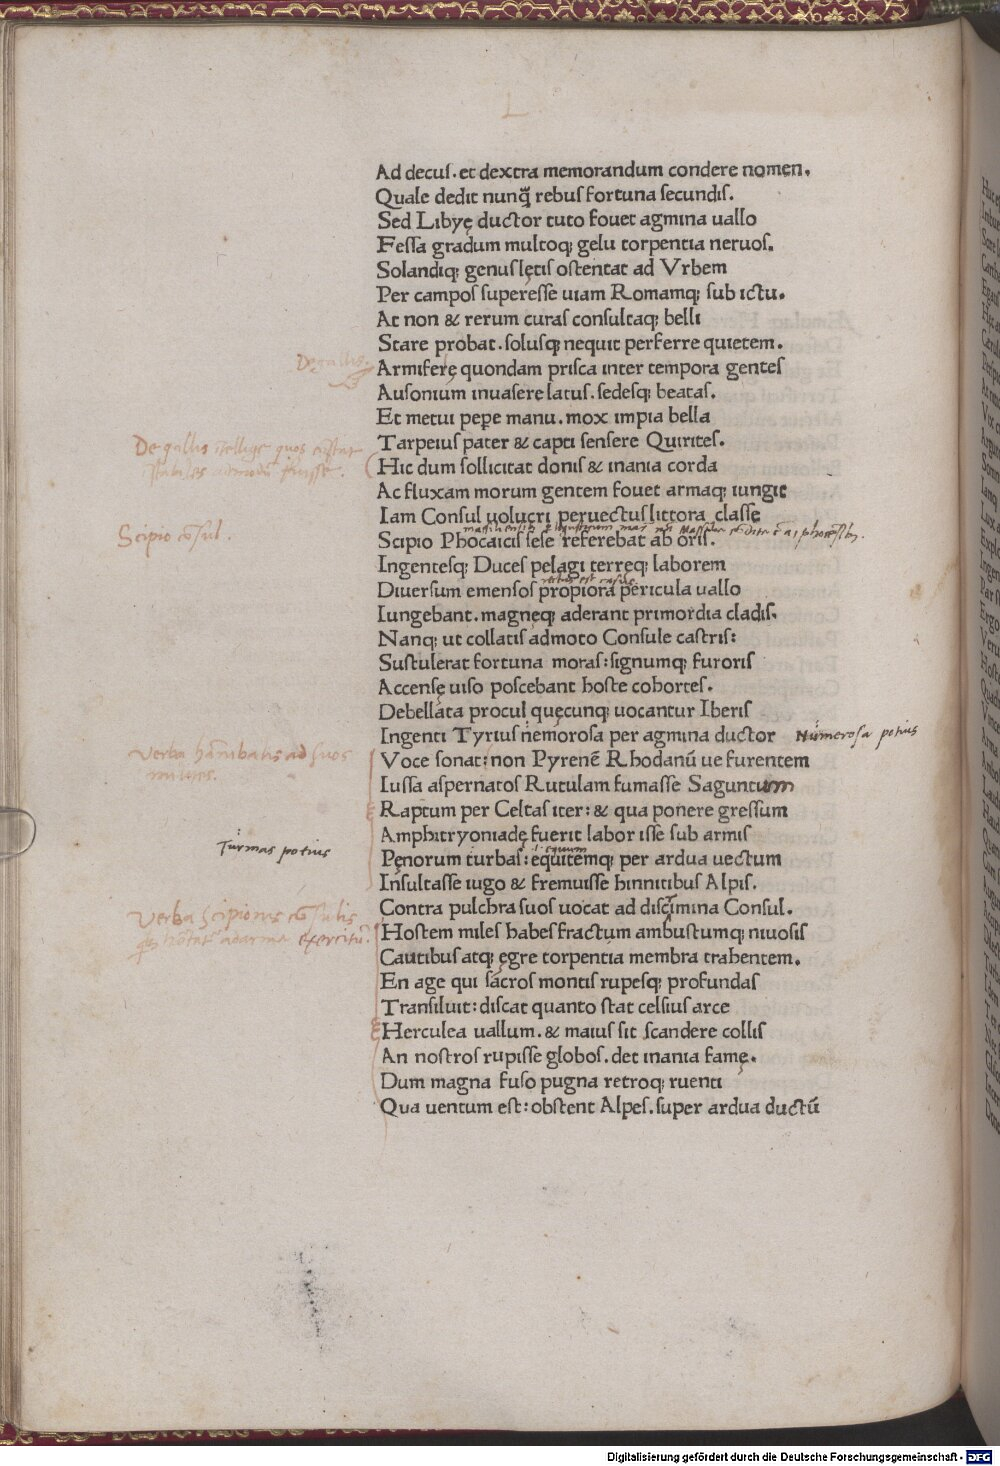 Ad decus. et dextra memorandum condere nomen.
Quale dedit nunq̃ rebus fortuna secundis.
Sed Libyę ductor tuto fouet agmina uallo
Fessa gradum multoq; gelu torpentia neruos.
Solandiq; genus lętis ostentat ad Vrbem
Per campos superesse uiam Romamq; sub ictu.
At non & rerum curas consultaq; belli
Stare probat. solusq; nequit perferre quietem.
De gallis.
Armiferę quondam prisca inter tempora gentes
Ausonium inuasere latus. sedesq; beatas.
Et metui pepe manu. mox impia bella
Tarpeius pater & capti sensere Quirites.
De gallis
Hic dum sollicitat donis & inania corda
Ac fluxam morum gentem fouet armaq; iungit
Iam Consul uolucri peruectus littora classe
Scipio cõsul.
Scipio Phocaicis sese referebat ab oris.
Ingentesq; Duces pelagi terręq; laborem
Diuersum emensos propiora pericula uallo
Iungebant. magnęq; aderant primordia cladis.
Nanq; ut collatis admoto Consule castris:
Sustulerat fortuna moras: signumq; furoris
Accensę uiso poscebant hoste cohortes.
Debellata procul quęcunq; uocantur Iberis
Ingenti Tyrius nemorosa per agmina ductor
Numerosa potius
Verba hãnibalis ad suos
milites.
Voce sonat: non Pyrenẽ Rhodanũ ue furentem
Iussa aspernatos Rutulam fumasse Saguntum
Raptum per Celtas iter: & qua ponere gressum
Amphitryoniadę fuerit labor isse sub armis
Turmas potius
Pęnorum turbas: equitemq; per ardua uectum
Insultasse iugo & fremuisse hinnitibus Alpis.
Contra pulchra suos uocat ad discrimina Consul.
Verba Scipionis cõsulis
adarma exercitũ.
Hostem miles habes fractum ambustumq; niuosis
Cautibus atq; ęgre torpentia membra trahentem.
En age qui sacros montis rupesq; profundas
Transiluit: discat quanto stat celsius arce
Herculea uallum. & maius sit scandere collis
An nostros rupisse globos. det inania famę.
Dum magna fuso pugna retroq; ruenti
Qua uentum est: obstent Alpes. super ardua ductũ
Digitalisierung gefördert durch die Deutsche Forschungsgemeinschaft - DFG